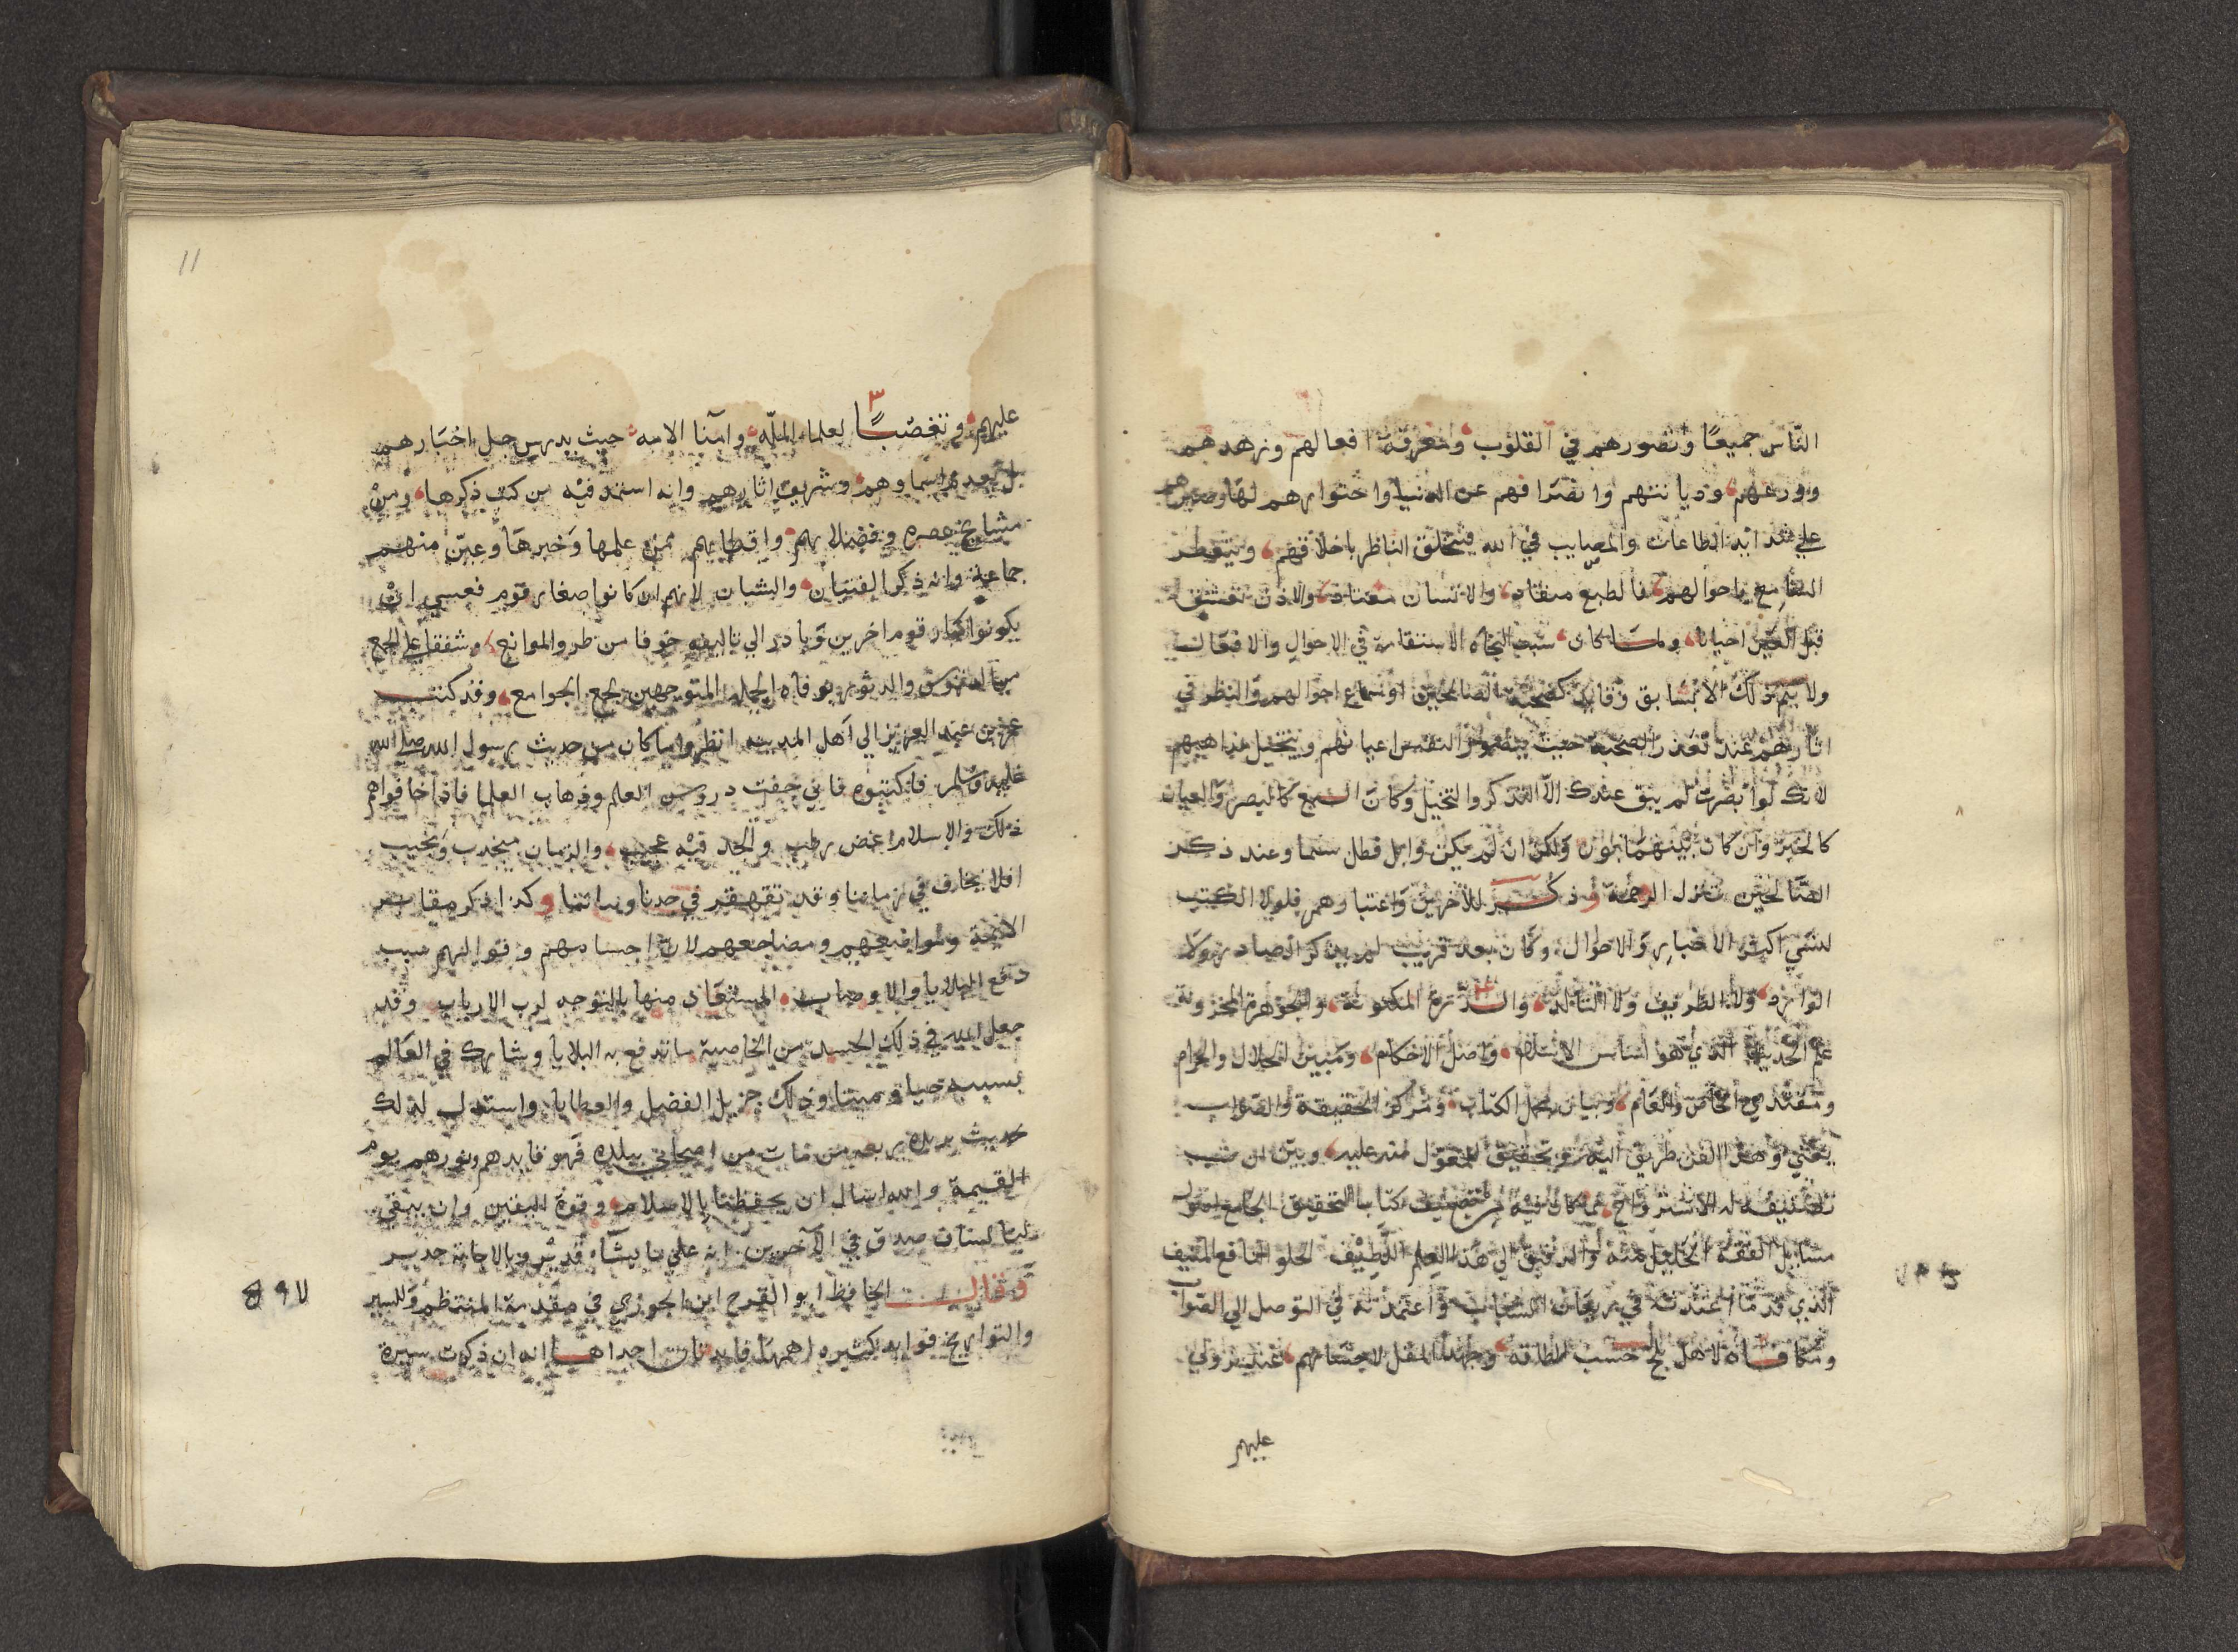 الناس جميعا وتصورهم في القلوب ومعرفة افعالهم وزهدهم
وورعهم وديانتهم وانصرافهم عن الدنيا واحتقارهم لها وصبرهم
على شدائد الطاعات والمصايب في الله فيتخلق الناظر باخلاقهم ويتعطر
السامع باحوالهم فالطبع منقاد والانسان معتاد والاذن تعشق
قبل العين احيانا ولما كان سبب النجاه الاستقامة في الاحوال والافعال
ولا يتم ذلك الا بسابق وقايد كصحبة الصالحين او سماع احوالهم والنظر في
اثارهم عند تعذر الصحبة حيث تتصور النفس اعيانهم ويتخيل مذاهبهم
لانك لو ابصرت لم يبق عندك الا التذكر والتخيل وكان السمع كالبصر والعيان
كالخبر وان كان بينهما بون ولكن ان لم يكن وابل فطل سيما وعند ذكر
الصالحين تنزل الرحمة وذكر للاخرين واعتبارهم فلولا الكتب
لنسي اكثر الاخبار والاحوال وكان بعد قريب لم يذكر الصادر ولا
الوارد ولا الطريف ولا التالد والدرة المكنونة والجوهرة المخزونة
علم الحديث الذي هو اساس الاسلام واصل الاحكام ومبين الحلال والحرام
ومقتدي الخاص والعام وبيان مجمل الكتاب ومركز الحقيقة والصواب
يعني وهذا الفن طريق اليه وتحقيق المعول منه عليه وبين ان سبب
تصنيفه له الاستراوح مما كان فيه من تصنيف كتاب التحقيق الجامع لمتون
مسايل الفقه الجليل منه والدقيق الى هذا العلم اللطيف الحلو النافع المنيف
الذي قدما اعتدته في ريعان الشباب واعتمدته في التوصل الى الصواب
ومكافاة لاهل بلخ حسب الطاقة وجهد المقل لاحسانهم عند نزولي
عليهم
11
عليهم وتعصبا لعلماء المله وامنا الامه حيث يدرس جل اخبارهم
بل يعدم اسماوهم وشريف اثارهم وانه استمد فيه من كتب ذكرها ومن
مشايخ عصره وفضلايهم واقطابهم ممن علمها وخبرها وعين منهم
جماعة وانه ذكر الفتيان والشبان لانهم ان كانوا صغار قوم فعسى ان
يكونوا كبار قوم اخرين وبادر الى تاليفه خوفا من طرو الموانع وشفقا على الجمع
من الدروس والدثور بوفاه الجله المتوجهين لجمع الجوامع وقد كتب
عمر بن عبد العزيز الى اهل المدينه انظروا ما كان من حديث رسول الله صلى الله
عليه وسلم فاكتبوه فاني خفت دروس العلم وذهاب العلما فاذا خافواهم
ذلك والاسلام غض رطب والجد فيه عجيب والزمان منجدب ونجيب
افلا يخاف في زماننا وقد تقهقر في حدنا وبياننا وكذا ذكر مقابر
الائمة ومواضعهم ومضاجعهم لان اجسامهم وقوالبهم سبب
دافع البلايا والاوصاب المستعاذ منها بالتوجه لرب الارباب وقد
جعل الله في ذلك الجسد من الخاصية ما تدفع به البلايا ويشارك في العالم
بسببه حيا وميتا وذلك جزيل الفضل والعطايا واستدل لذلك
حديث بريده رفعه من مات من اصحابي ببلدة فهو قايدهم ونورهم يوم
القيمة والله اسال ان يحفظنا بالاسلام وقوة اليقين وان يبقي
لنا لسان صدق في الآخرين انه على ما يشآء قدير وبالاجابة جدير
وقال الحافظ ابو الفرج ابن الجوزي في مقدمة المنتظم وللسير
والتواريخ فوايد كثيره اهمها فايدتان احداها انه ان ذكرت سيرة